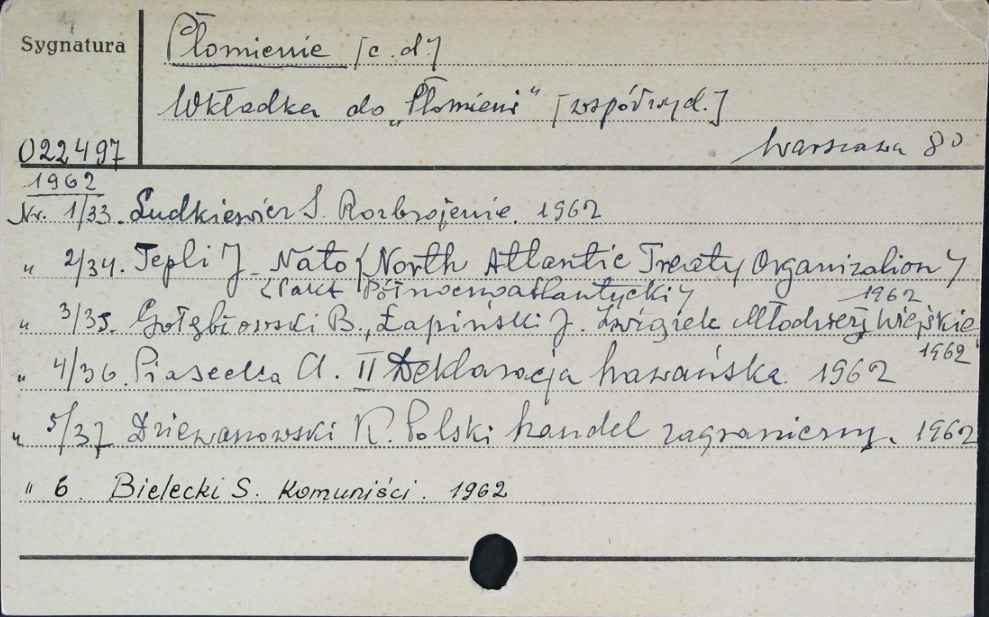 Sygnatura
Płomienie [c.d.]
Wkładka do „Płomieni" [współwyd.]
022497
Warszawa 80
1962
Nr. 1/33. Ludkiewicz S. Rozbrojenie. 1962
" 2/34. Tepli J. Nato (North Atlantic Treaty Organization)
(Pakt Północnoatlantycki) 1962
" 3/35. Gołębiowski B., Łapiński J. Związek Młodzieży Wiejskiej
1962
" 4/36. Piasecka A. II Deklaracja hawańska. 1962
" 5/37. Dziewanowski K. Polski handel zagraniczny. 1962
" 6. Bielecki S. Komuniści. 1962